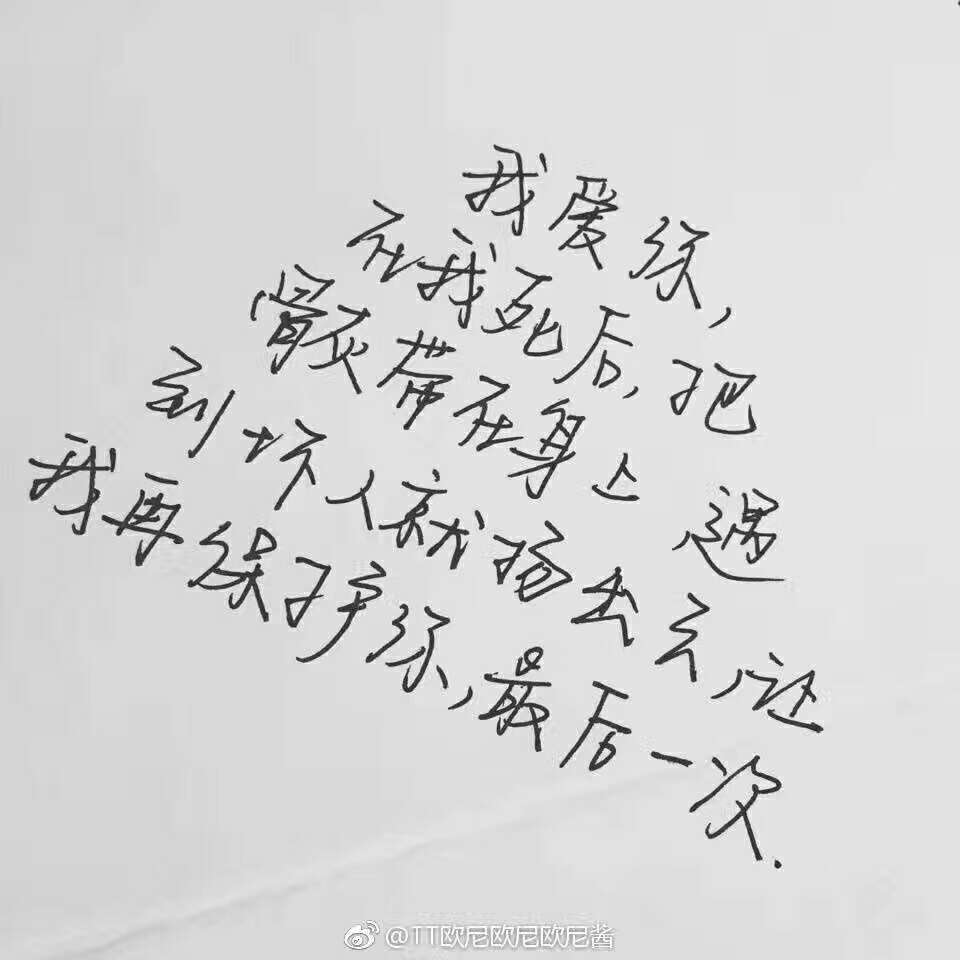 我爱你,
在我死后,把
骨灰带在身上 遇
到坏人就扬出去,让
我再保护你,最后一次.
@TT欧尼欧尼欧尼酱